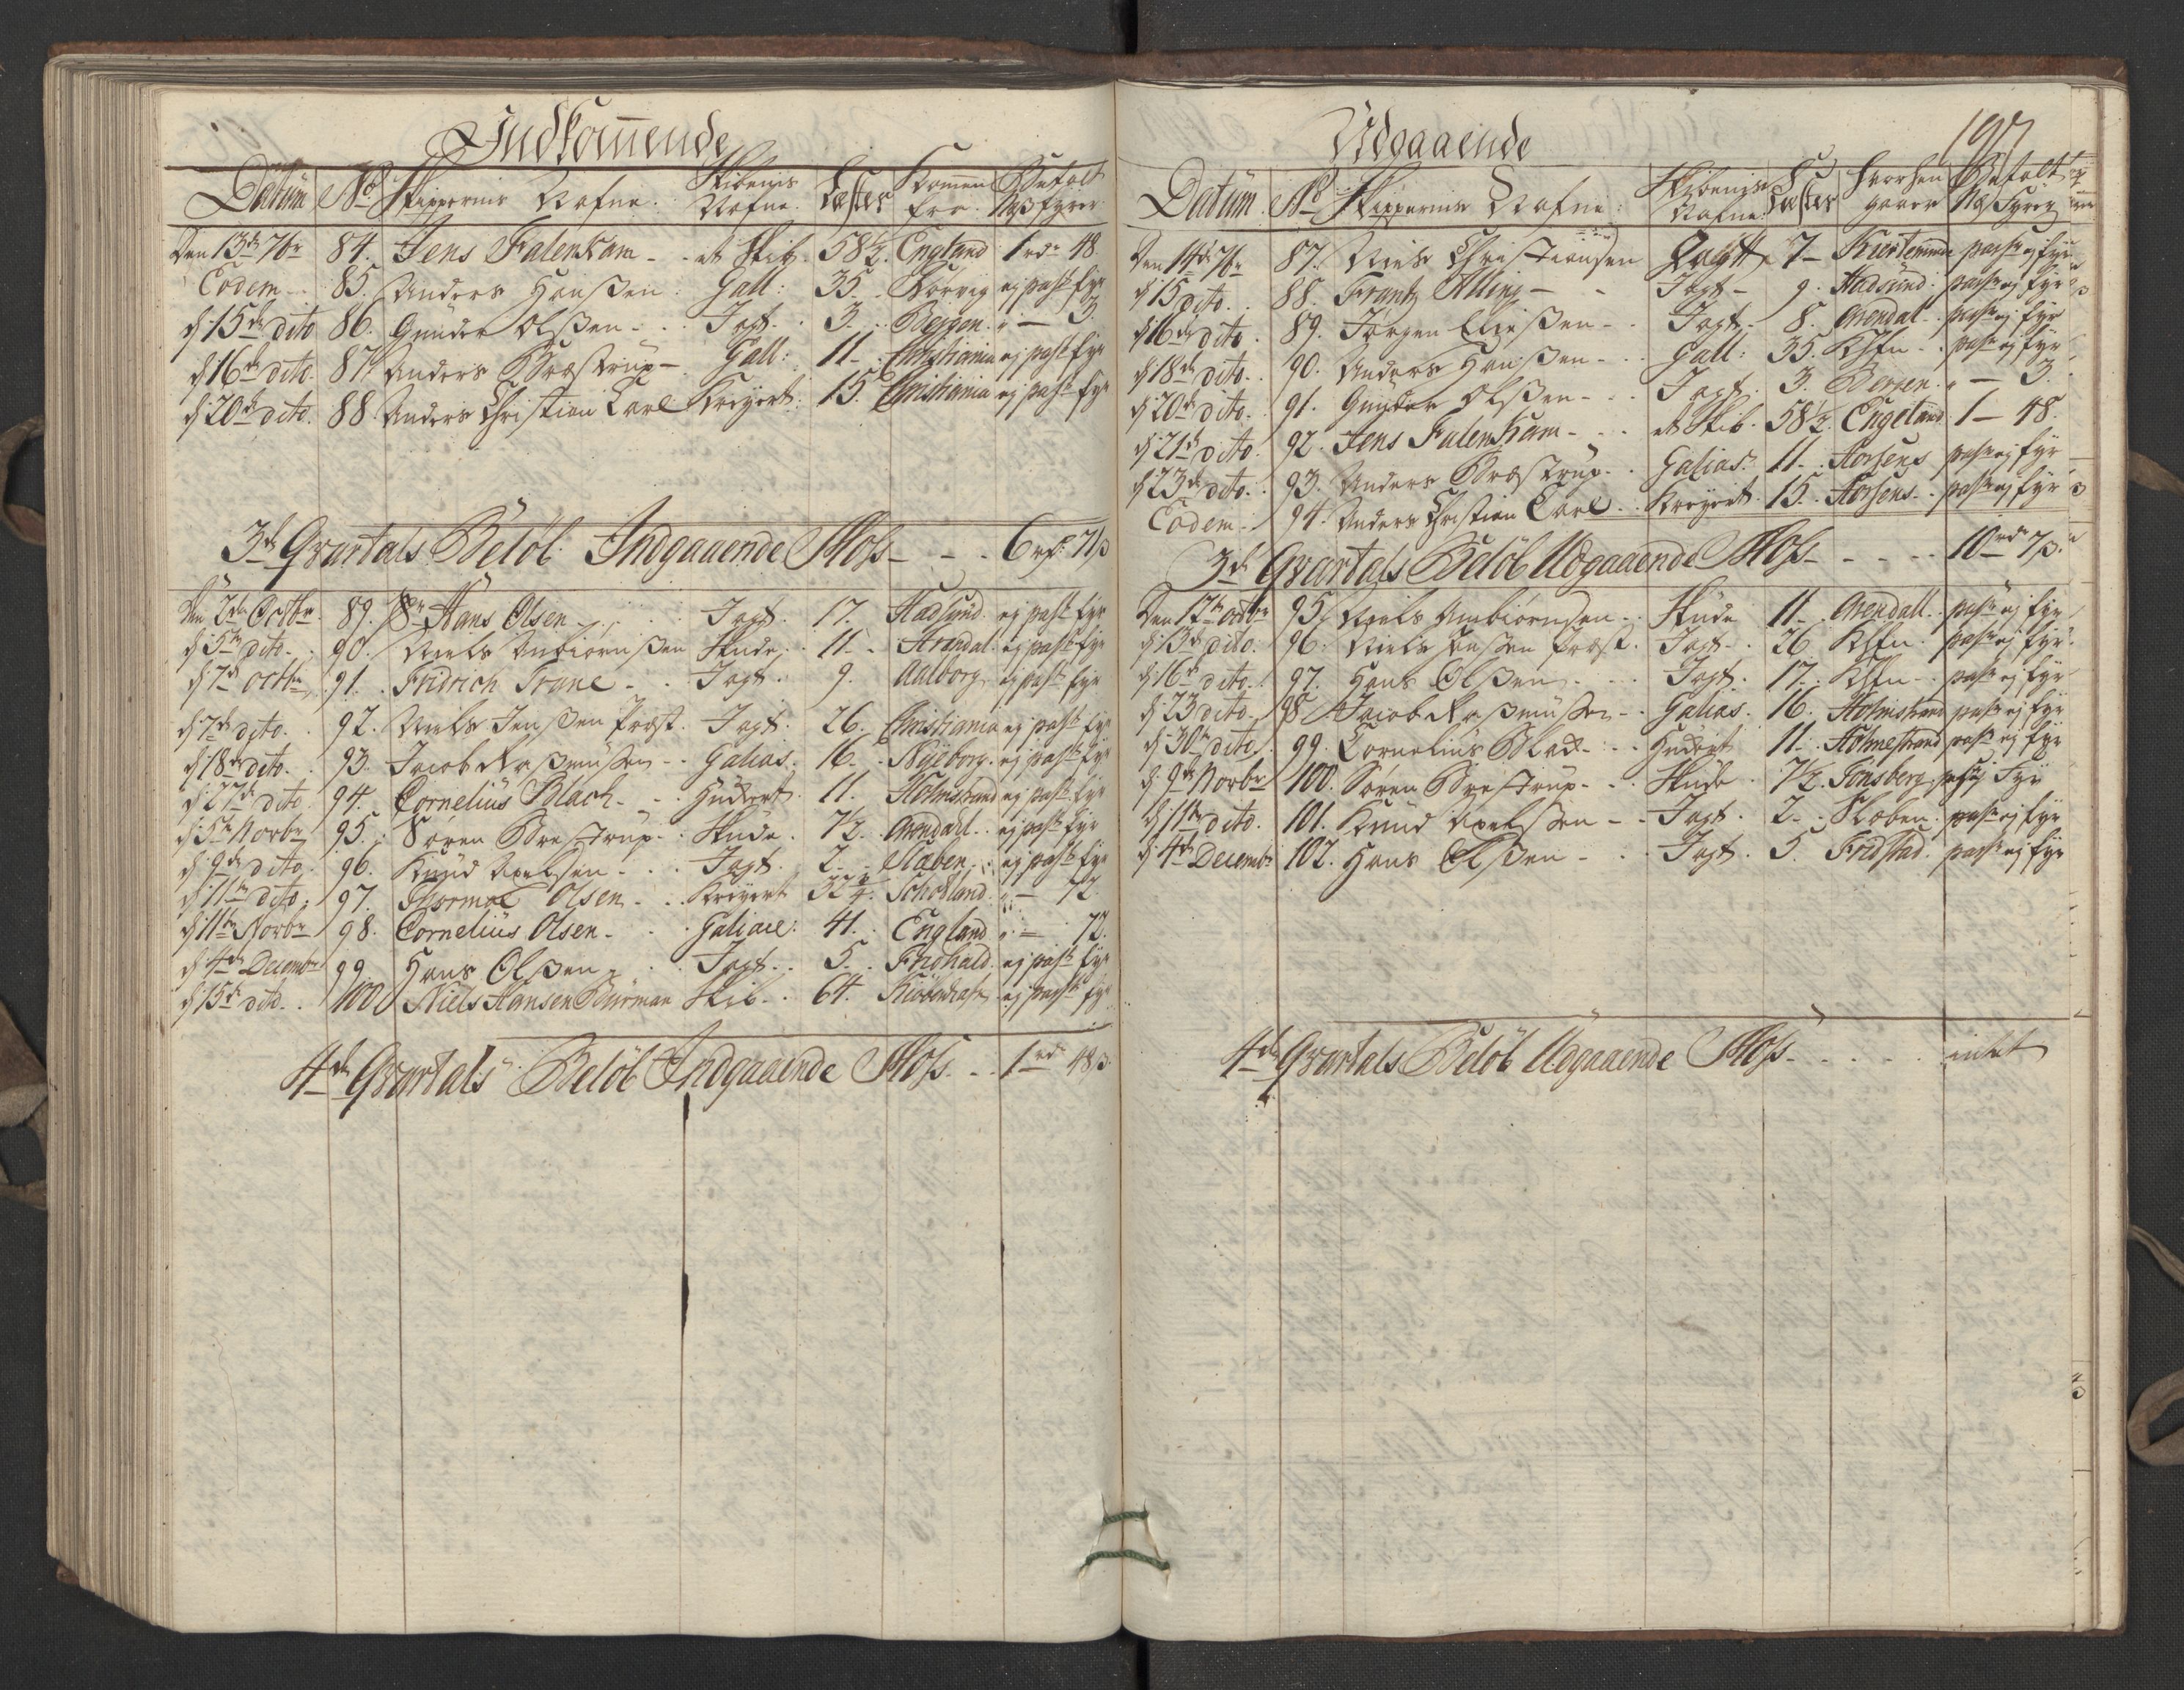 Indkom̄ende
Datum No Skippernes Nafne. Skibenes Nafne. Læster Kommen fra. Betalt Næs fyrer
Den 13de 7br 84. Jens Falenkam - et Skib. 58½. England 1 rdr 48.
Eodem - 85. Anders Hansßen. Gall: 35. ej pass: fyr
d 15de dito 86. Gunder Olsßen - Jagt. 3. Bergen. " — 3.
d 16de dito. 87. Anders Bræstrup - Gall: 11. Christiania ej pass: fyr
d 20de dito. 88. Anders Christian Carl Kreyert. 15. Christiania ej pass: fyr
3de Qvartals Beløb Indgaaende Moss - - - 6 rdr: 71 ß
Den 2de Octbr. 89. Hans Olsen - Jagt. 17. Hadsund. ej pass: fyr
d 5te dito. 90. Niels Anbiørnsßen Skude. 11 - Arendal. ej pass: fyr
d 7de octbr 91. Fridrich Trane - Jagt. 9. Aalborg ej pass: fyr
d 7de dito. 92. Niels Jensßen Præst. Jagt. 26. Christiania ej pass: fyr
d 18de dito. 93. Jacob Rasßmusßen - Galias. 16. Nyeborg. ej pass: fyr
d 27de dito 94. Cornelius Blach - Huckert. 11. Holmstrand ej pass: fyr
d 5te Novbr 95. Søren Brestrup. Skude. 7½. Arendall. ej pass: fyr
d 9de dito. 96. Knud Axelsen - Jagt. 2. Slæben. ej pass: fyr
d 11te dito. 97. Thormoe Olsen. Kreyert Schotland. " — 72.
d 11te Novbr 98. Cornelius Olsen - Galiace: 41. England " — 72.
d 4de Decembr 99. Hans Olsßen - Jagt. 5. Fridhald. ej pass: fyr
d 15de dito. 100. Niels Hansen Burman Skib. 64. Kiøbenhafn ej pass: fyr
4de Qvartals Beløb Indgaaende Moss. - 1 rdr 48 ß.
197
Udgaaende
Datum. No Skippernes Nafne. Skibenes Nafne. Læster hvorhen gaaer Betalt Næs Fyrer
Den 14de 7br 87. Niels Christiansen 7 - Kierteminde pass: ej fyr
d 15 dito. 88. Frantz Alling - Jagt - 9. Hadsund. pass: ej fyr
d 16de dito 89. Jørgen Eliesßen - Jagt - 8. Arendal. pass: ej fyr
d 18de dito. 90. Anders Hansßen - Gall: 35. Khfn - pass: ej fyr
d 20de dito. 91. Gunder Olsßen - Jagt. 3. Bergen. " — 3.
d 21de dito. 92. Jens Falenkam - et Skib. 58½. Engeland 1 — 48.
d 23de dito. 93. Anders Bræstrup. Galias. 11. Horsens pass: ej fyr
Eodem. 94. Anders Christian Carl. Kreyert. 15. Horsens. pass: ej fyr
3de Qvartals Beløb Udgaaende Moss - - - 10 rdr 7 ß.
Den 12te octbr 95. Niels Anbiørnsen - Skude 11 - Arendall. pass: ej fyr
d 13de dito. 96. Niels Jensßen Præst. Jagt - 26 Khfn. pass: ej fyr.
d 16de dito. 97. Hans Olsßen. Jagt. 17. Khfn - pass: ej fyr
d 23 dito. 98 Jacob Rasßmusßen - Galias. 16. Holmstrand pass: ej fyr
d 30te dito 99. Cornelius Black. Huckert 11. Holmestrand pass: ej fyr
d 9de Novbr 100. Søren Brestrup. Skude. 7½. Tønsberg. pass: ej Fyr
d 11te dito. 101. Knud Axelsßen - Jagt. 2. Slæben. pass: ej fyr
d 4de Decembr 102. Hans Olsßen - Jagt. 5. Fridstad. pass: ej fyr
4de Qvartals Beløb Udgaaende Moss - - - intet